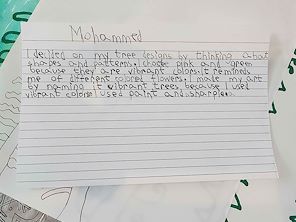 Mohammed
I decided on my tree designs by thinking about
shapes and patterns. I choose pink and green
because they are vibrant colors. it reminds
me of different colored flowers. I made my art
by naming it vibrant trees because I used
vibrant colors. I used paint and sharpies.